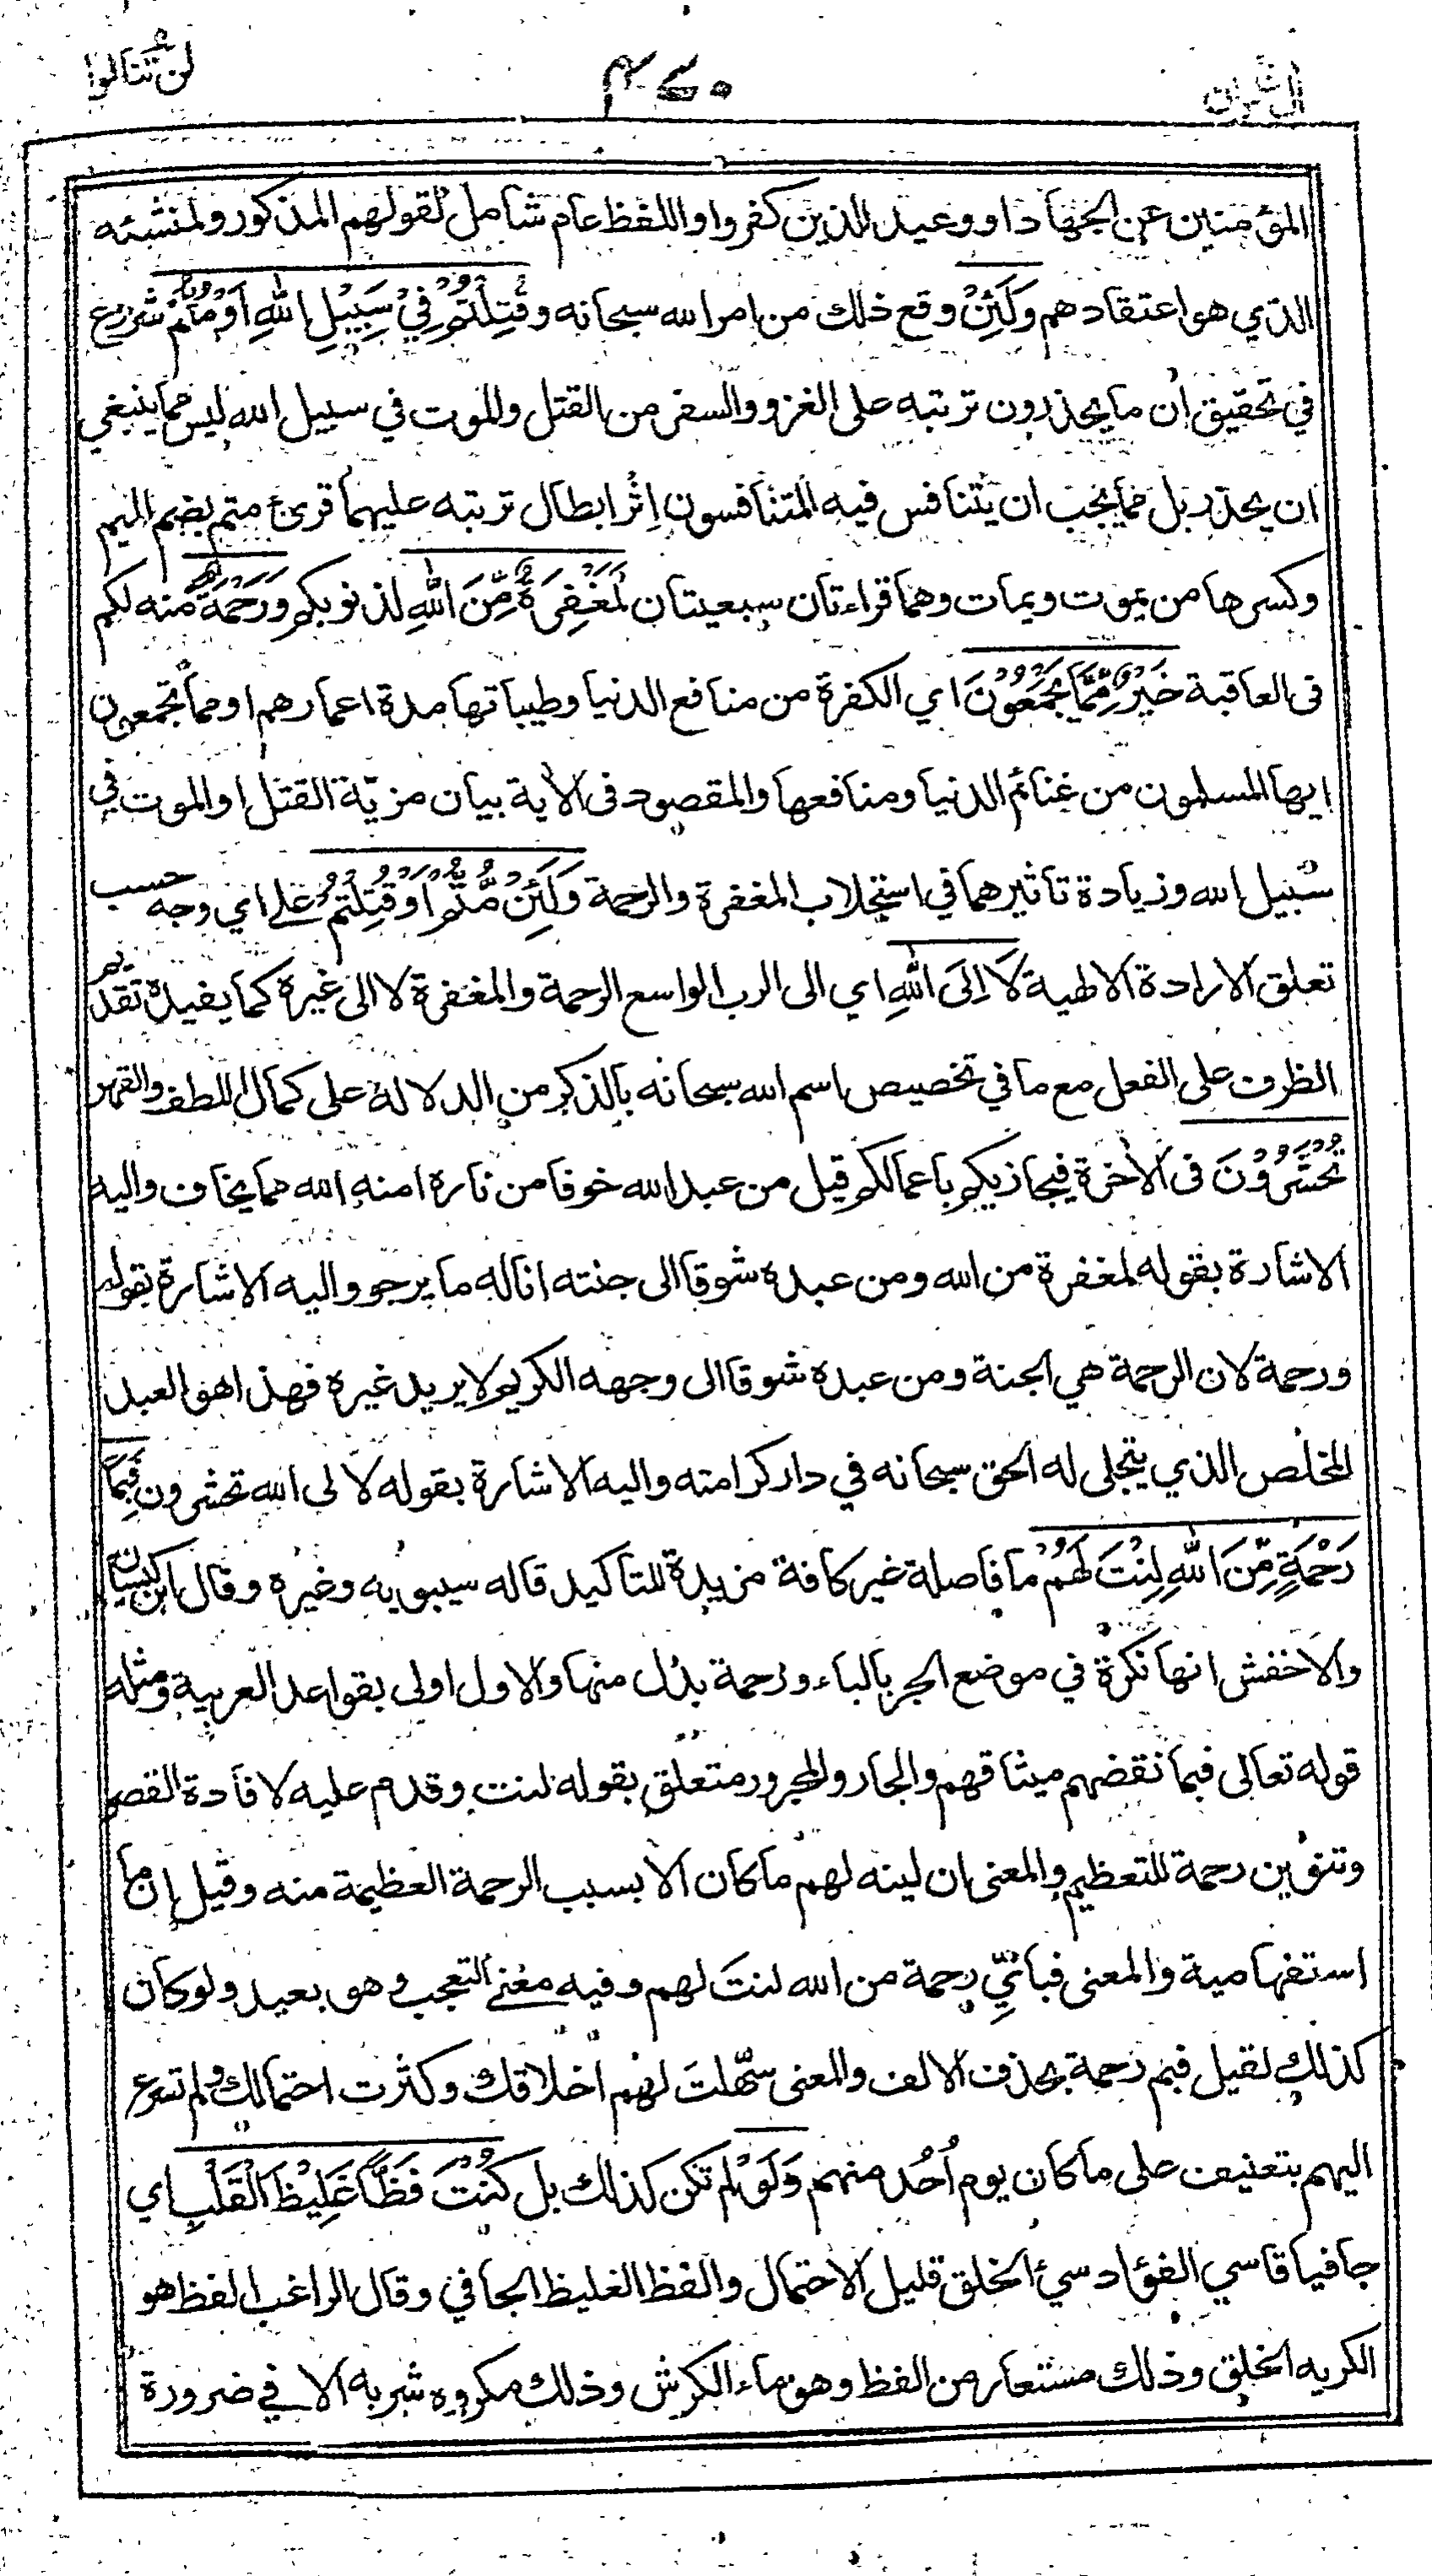 لن تنالوا
٤٧٠
ال عمران
المؤمنين عن الجهاد او وعيد للذين كفروا واللفظ عام شامل لقولهم المذكور ولمنشئه
الذي هو اعتقادهم وَلَئِنْ وقع ذلك من امر الله سبحانه وقُتِلْتُمْ فِيْ سَبِيْلِ اللهِ اَوْ مُتُّمْ شروع
في تحقيق ان ما يحذرون ترتبه على الغزو والسفر من القتل والموت في سبيل الله ليس مما ينبغي
ان يحذر بل مما يجب ان يتنافس فيه المتنافسون اِثر ابطال ترتبه عليهما قرئ متم بضم الميم
وكسرها من يموت ويمات وهما قراءتان سبعيتان لَمَغْفِرَةٌ مِّنَ اللهِ لذنوبكم وَرَحْمَةٌ منه لكم
فى العاقبة خَيْرٌ مِّمَّا يَجْمَعُوْنَ اي الكفرة من منافع الدنيا وطيباتها مدة اعمارهم او مما تجمعون
ايها المسلمون من غنائم الدنيا ومنافعها والمقصود فى الأية بيان مزيّة القتل او الموت في
سبيل الله وزيادة تأثيرهما في استجلاب المغفرة والرحمة وَلَئِنْ مُّتُّمْ اَوْ قُتِلْتُمْ على اي وجه حسب
تعلق الارادة الالهية لَاِلَى اللهِ اي الى الرب الواسع الرحمة والمغفرة لا الى غيره كما يفيده تقديم
الظرف على الفعل مع ما في تخصيص اسم الله سبحانه بالذكر من الدلالة على كمال اللطف والقهر
تُحْشَرُوْنَ فى الأخرة فيجازيكم باعمالكم قيل من عبد الله خوفا من ناره امنه الله مما يخاف واليه
الاشارة بقوله لمغفرة من الله ومن عبده شوقا الى جنته اناله ما يرجو واليه الاشارة بقوله
ورحمة لان الرحمة هي الجنة ومن عبده شوقا الى وجهه الكريم لا يريد غيره فهذا هو العبد
المخلص الذي يتجلى له الحق سبحانه في دار كرامته واليه الاشارة بقوله لالى الله تحشرون فَبِمَا
رَحْمَةٍ مِّنَ اللهِ لِنْتَ لَهُمْ ما فاصلة غير كافة مزيدة للتاكيد قاله سيبويه وغيره وقال ابن كيسان
والاخفش انها نكرة في موضع الجر بالباء ورحمة بدل منها والاول اولى بقواعد العربية ومثله
قوله تعالى فبما نقضهم ميثاقهم والجار والمجرور متعلق بقوله لنت وقدم عليه لافادة القصر
وتنوين رحمة للتعظيم والمعنى ان لينه لهم ما كان الا بسبب الرحمة العظيمة منه وقيل ان ما
استفهامية والمعنى فبأيِّ رحمة من الله لنتَ لهم وفيه معنى التعجب وهو بعيد ولو كان
كذلك لقيل فبم رحمة بحذف الالف والمعنى سهّلتَ لهم اخلاقك وكثرت احتمالك ولم تسرع
اليهم بتعنيف على ما كان يوم اُحُد منهم وَلَوْ لم تكن كذلك بل كُنْتَ فَظًّا غَلِيْظَ الْقَلْبِ اي
جافيا قاسي الفؤاد سيئ الخلق قليل الاحتمال والفظ الغليظ الجافي وقال الراغب الفظ هو
الكريه الخلق وذلك مستعار من الفظ وهو ماء الكرش وذلك مكروه شربه الا في ضرورة